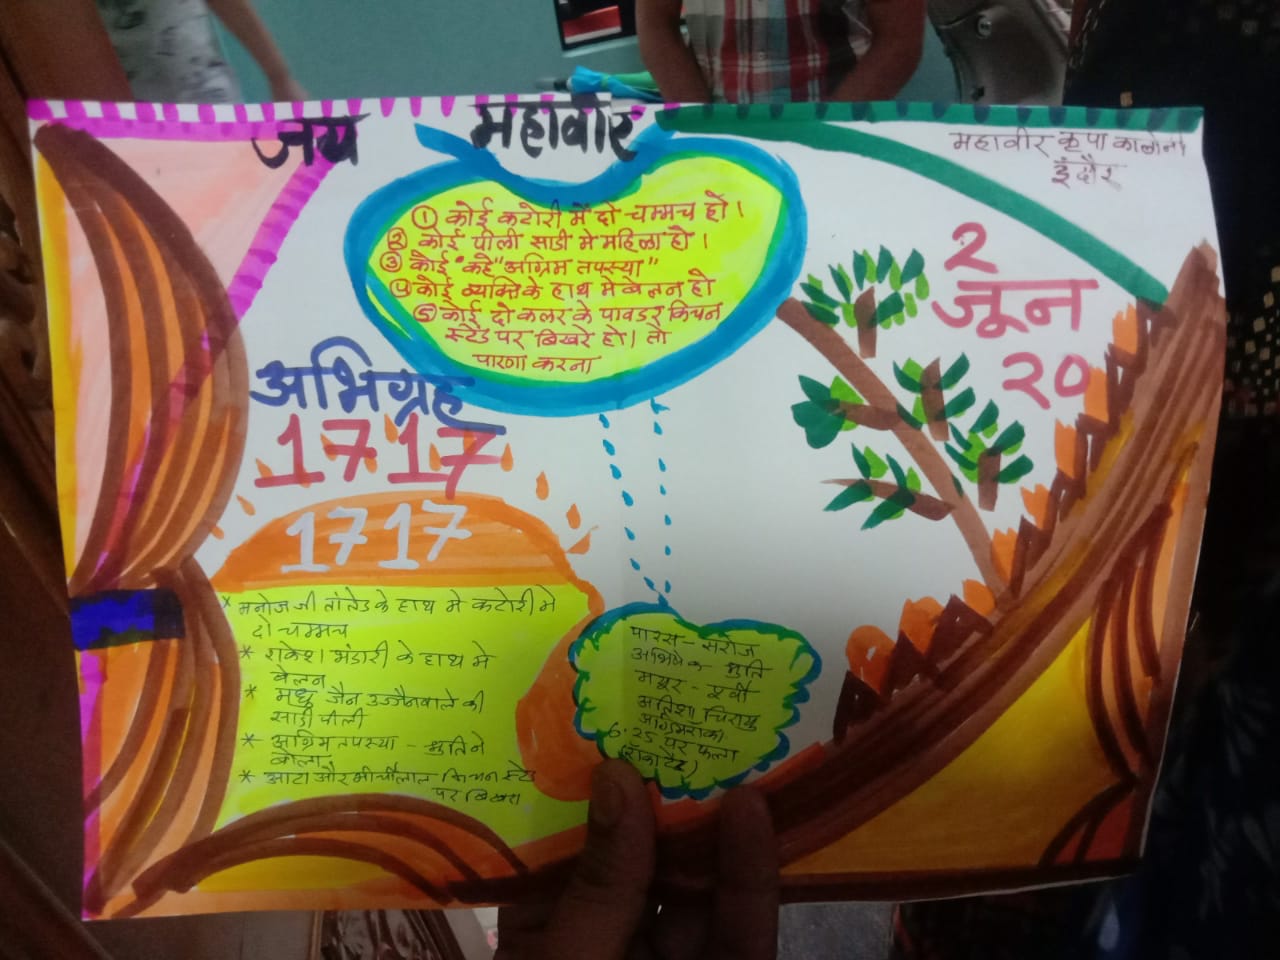 जय महावीर
महावीर कृपा कालोनी
इंदौर
① कोई कटोरी में दो चम्मच हो।
② कोई पीली साडी मे महिला हो।
③ कोई कहै "अग्रिम तपस्या"
④ कोई व्यक्ति के हाथ मे बेलन हो
⑤ कोई दो कलर के पावडर किचन
स्टैंड पर बिखरे हो। तो
पारणा करना
2
जून
20
अभिग्रह
1717
1717
* मनोज जी के हाथ मे कटोरी मे
दो चम्मच
* राकेश भंडारी के हाथ मे
बेलन
* मधु जैन उज्जैनवाले की
साडी पीली
* अग्रिम तपस्या - श्रुति ने
बोला
* आटा और मीर्चीलाल किचन स्टैंड
पर बिखरा
पारस - सरोज
अभिषेक - श्रुति
मयूर - पूर्वी
चिरायु
6.25 पर फला